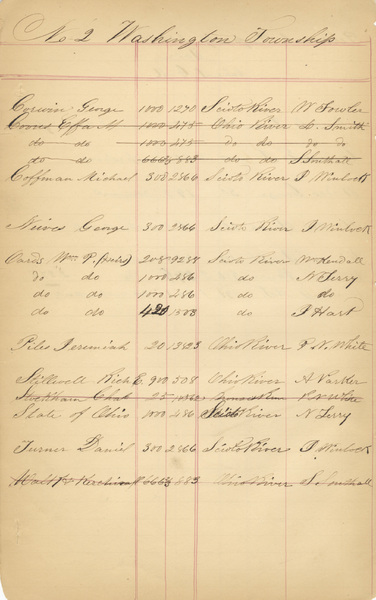 No 2 Washington Township
Corwin George 1000 1270 Scioto River W Fowler
Cones Effa M 1000 475 Ohio River S. Smith
do do 1000 475 do do do do
do do 666⅔ 883 do do S Southall
Coffman Michael 308 2866 Scioto River T Winlock
Neives George 300 2866 Scioto River T Winlock
Wm P. (heirs) 208 Scioto River Wm Kendall
do do 1000 486 do N Terry
do do 1000 486 do do
do do 420 1508 do J Hart
Piles Jeremiah 20 Ohio River P. N. White
Stillwell Rich 900 508 Ohio River A Parker
Chas 25
State of Ohio 1000 486 Scioto River N Terry
Turner Daniel 300 2866 Scioto River T Winlock
666⅔ 883 Ohio River S. Southall